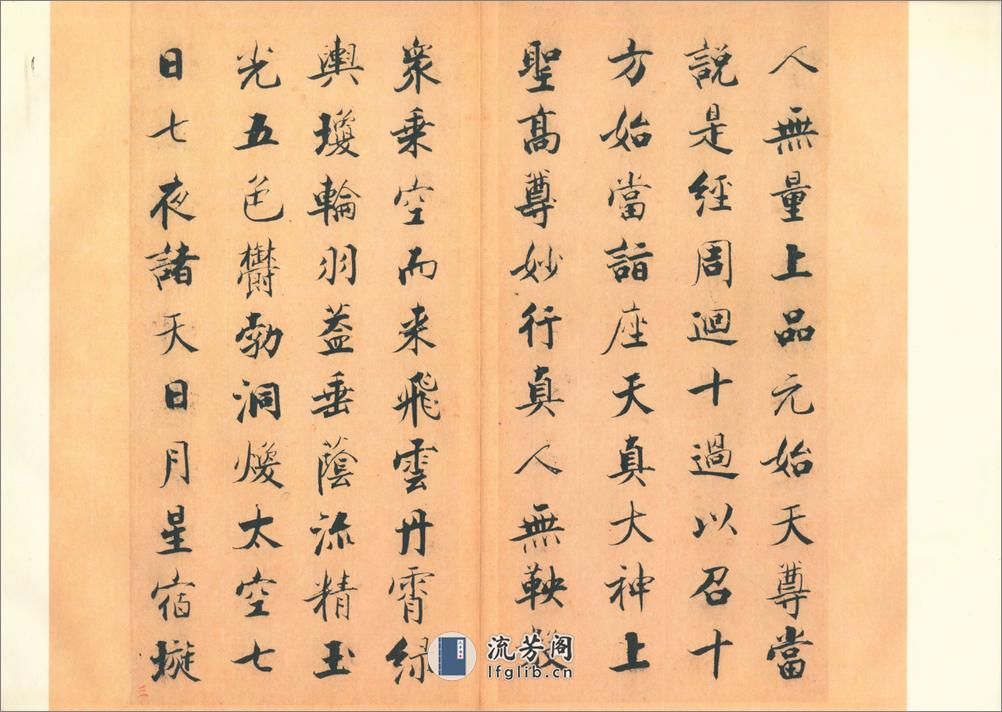 人無量上品元始天尊當
說是經周迴十過以召十
方始當詣座天真大神上
聖高尊妙行真人無鞅數
衆乗空而来飛雲丹霄緑
輿瓊輪羽葢垂蔭流精玉
光五色鬱勃洞煥太空七
日七夜諸天日月星宿璇
三
流芳阁
lfglib.cn